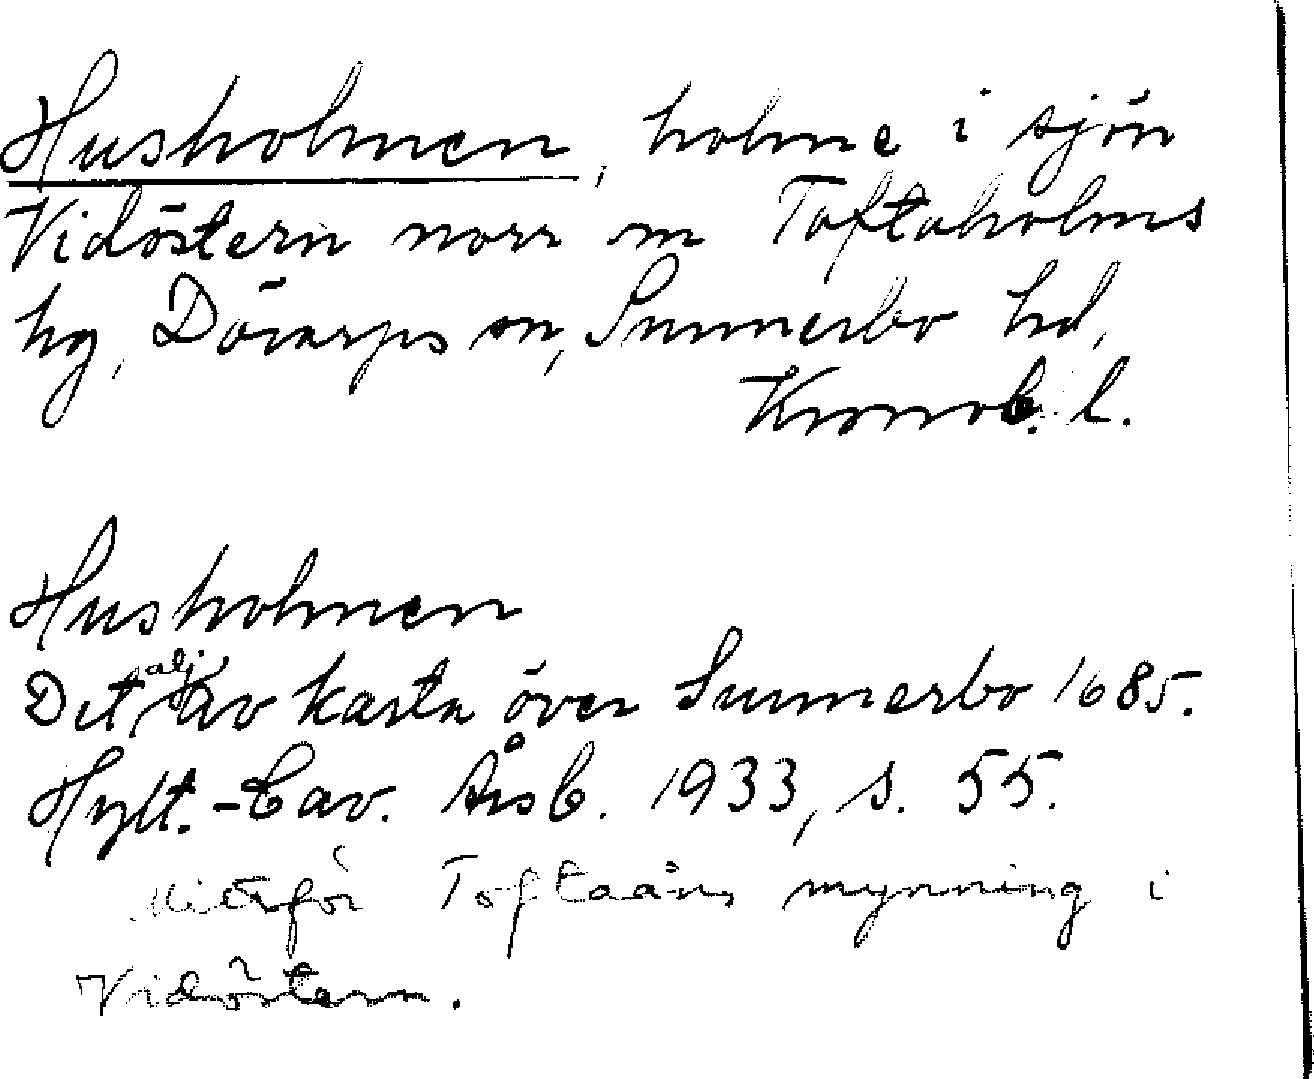 Husholmen, holme i sjön
Vidöstern norr om Toftaholms
hg, Dörarps sn, Sunnerbo hd,
Kronob. l.
Husholmen
Detalj av karta över Sunnerbo 1685.
Hylt.-Cav. Årsb. 1933, s. 55.
Mitt för Toftaåns mynning i
Vidöstern.